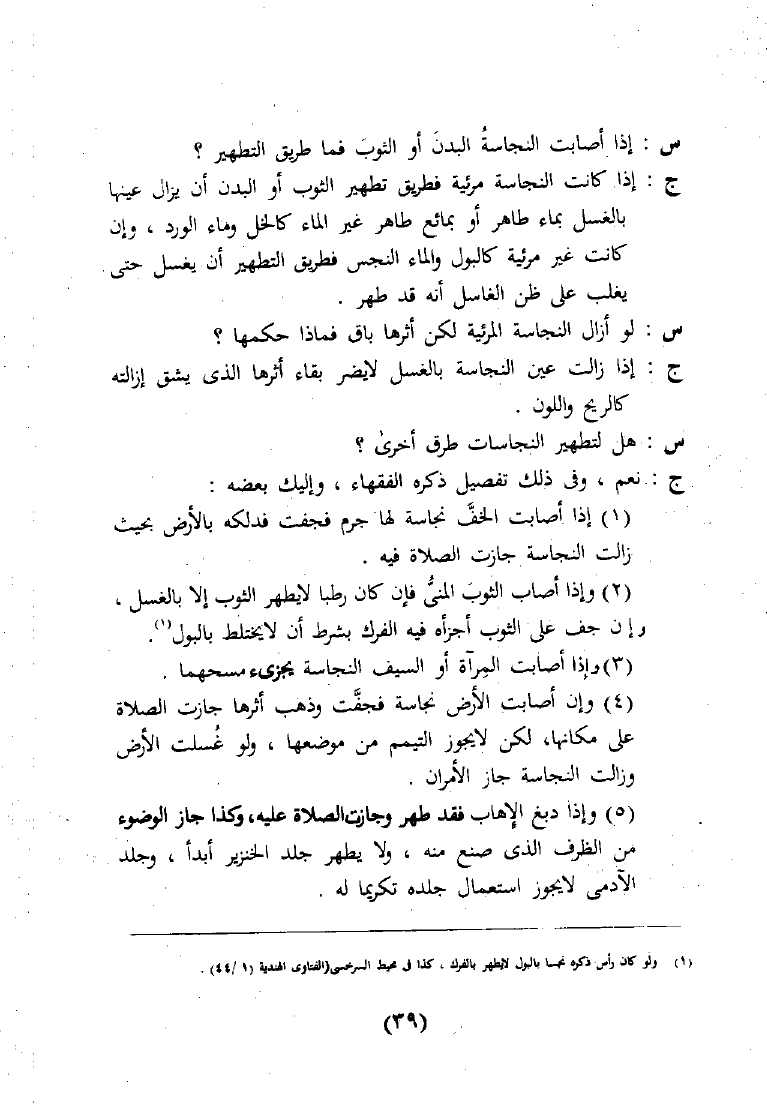 س : إذا أصابت النجاسةُ البدنَ أو الثوبَ فما طريق التطهير ؟
ج : إذا كانت النجاسة مرئية فطريق تطهير الثوب أو البدن أن يزال عينها
بالغسل بماء طاهر أو بمائع طاهر غير الماء كالخل وماء الورد ، وإن
كانت غير مرئية كالبول والماء النجس فطريق التطهير أن يغسل حتى
يغلب على ظن الغاسل أنه قد طهر .
س : لو أزال النجاسة المرئية لكن أثرها باق فماذا حكمها ؟
ج : إذا زالت عين النجاسة بالغسل لايضر بقاء أثرها الذى يشق إزالته
كالريح واللون .
س : هل لتطهير النجاسات طرق أخرىٰ ؟
ج : نعم ، وفى ذلك تفصيل ذكره الفقهاء ، وإليك بعضه :
(١) إذا أصابت الخفَّ نجاسة لها جرم فجفت فدلكه بالأرض بحيث
زالت النجاسة جازت الصلاة فيه .
(٢) وإذا أصاب الثوبَ المنىُّ فإن كان رطبا لايطهر الثوب إلا بالغسل ،
وإن جف على الثوب أجزأه فيه الفرك بشرط أن لايختلط بالبول(١).
(٣) وإذا أصابت المِرآة أو السيف النجاسة يجزىء مسحهما .
(٤) وإن أصابت الأرض نجاسة فجفَّت وذهب أثرها جازت الصلاة
على مكانها، لكن لايجوز التيمم من موضعها ، ولو غُسلت الأرض
وزالت النجاسة جاز الأمران .
(٥) وإذا دبغ الإهاب فقد طهر وجازت الصلاة عليه، وكذا جاز الوضوء
من الظرف الذى صنع منه ، ولا يطهر جلد الخنزير أبدأ ، وجلد
الآدمى لايجوز استعمال جلده تكريما له .
(١) ولو كان رأس ذكره نجسا بالبول لايطهر بالفرك ، كذا فى محيط السرخسى(الفتاوى الهندية (١ /٤٤) .
(٣٩)